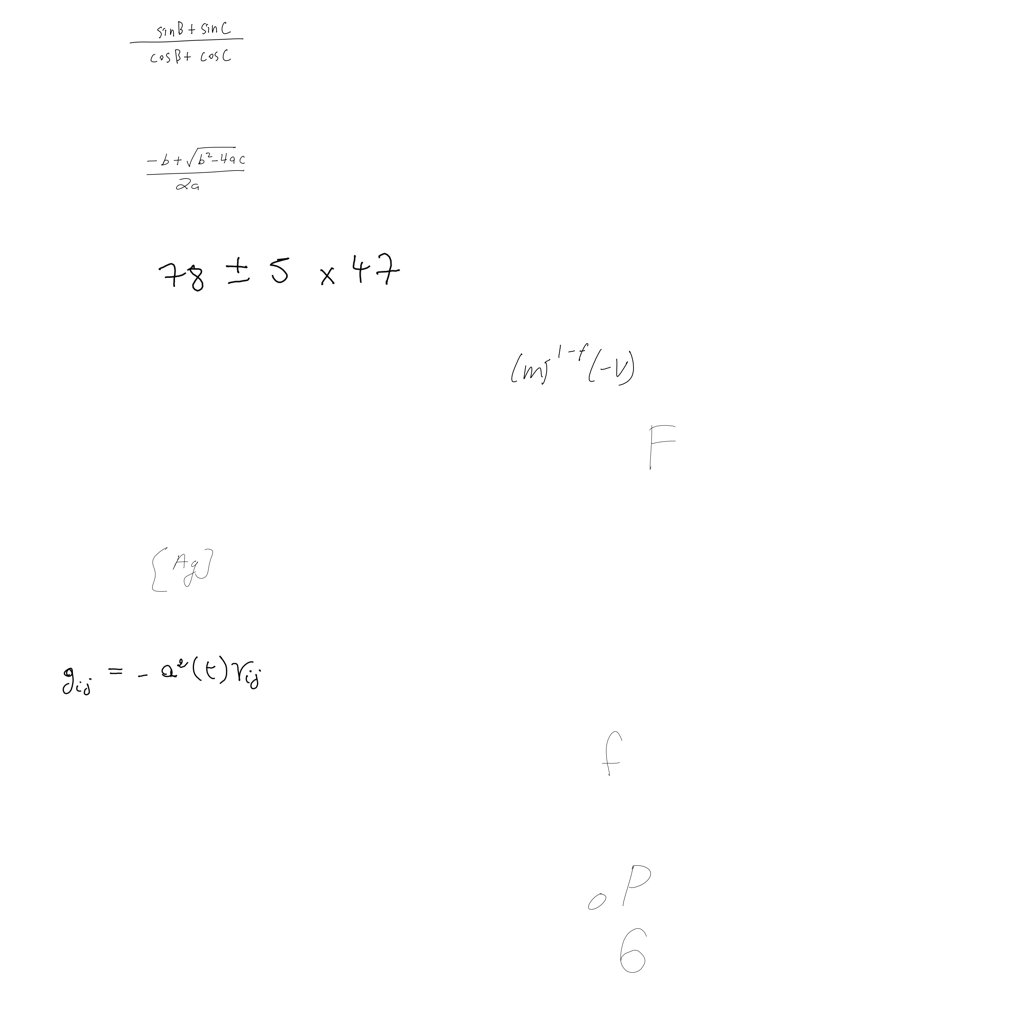 \frac{\sin B + \sin C}{\cos B + \cos C}
\frac{-b + \sqrt{b^2 - 4ac}}{2a}
78 ± 5 × 47
(m)^{1-f}(-V)
F
[Ag]
g_{ij} = - a^2(t) γ_{ij}
f
_o P
6